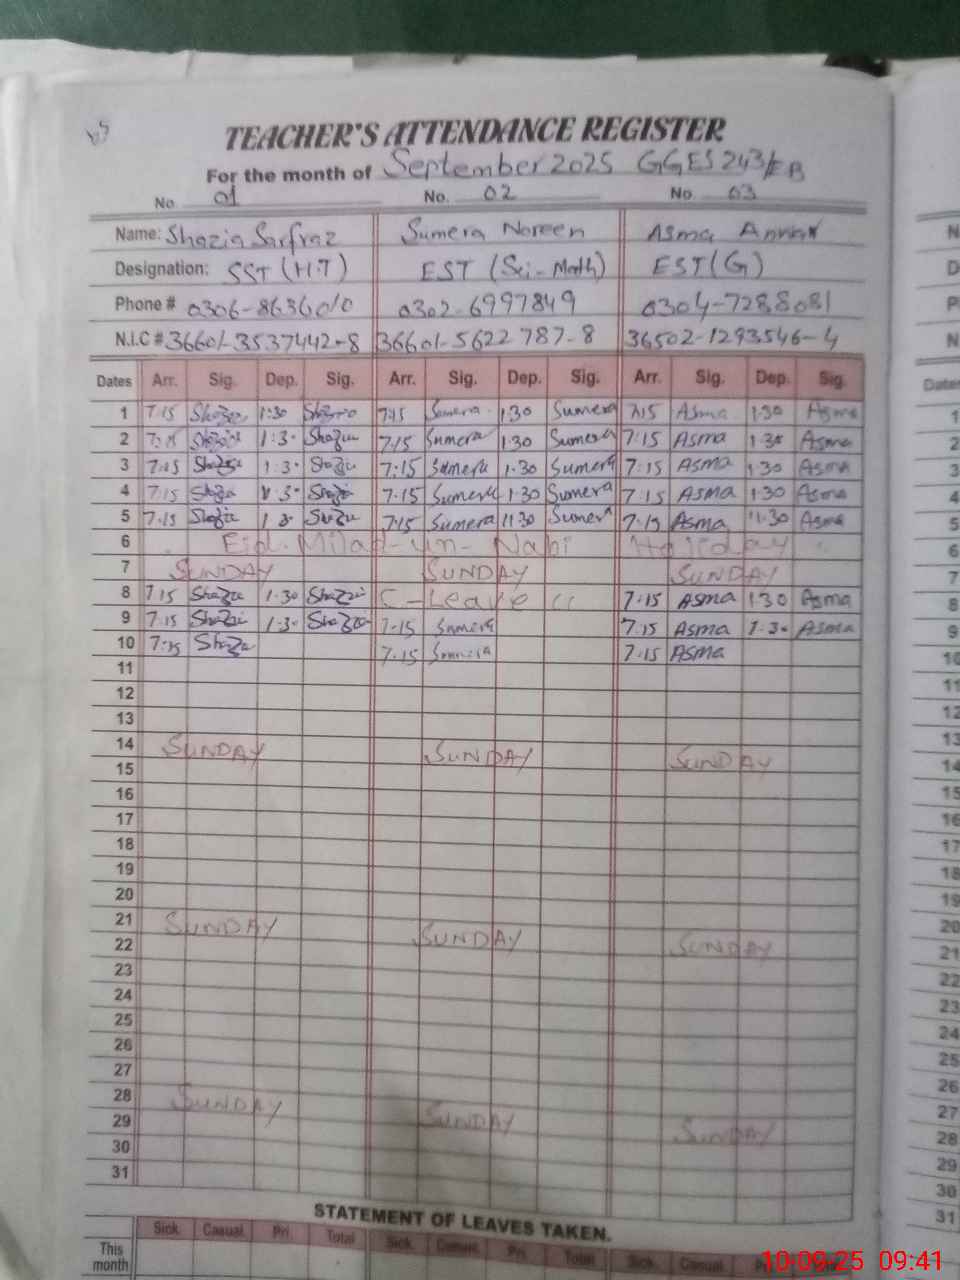 TEACHER'S ATTENDANCE REGISTER
For the month of September 2025 GGES 243/EB
No. 01 No. 02 No. 03
Name: Shazia Sarfraz Sumera Noreen Asma
Designation: SST (H.T) EST (Sci-Math) EST (G)
Phone # 0306-8636010 0302-6997849 0304-7288081
N.I.C # 36601-3537442-8 36601-5622787-8 36502-1293546-4
Dates Arr. Sig. Dep. Sig. Arr. Sig. Dep. Sig. Arr. Sig. Dep. Sig.
1 7:15 Shazia 1:30 Shazia 7:15 Sumera 1:30 Sumera 7:15 Asma 1:30 Asma
2 7:15 Shazia 1:30 Shazia 7:15 Sumera 1:30 Sumera 7:15 Asma 1:30 Asma
3 7:15 Shazia 1:30 Shazia 7:15 Sumera 1:30 Sumera 7:15 Asma 1:30 Asma
4 7:15 Shazia 1:30 Shazia 7:15 Sumera 1:30 Sumera 7:15 Asma 1:30 Asma
5 7:15 Shazia 1:30 Shazia 7:15 Sumera 1:30 Sumera 7:15 Asma 1:30 Asma
6 Eid-Milad-un-Nabi Holiday
7 SUNDAY SUNDAY SUNDAY
8 7:15 Shazia 1:30 Shazia C-Leave 7:15 Asma 1:30 Asma
9 7:15 Shazia 1:30 Shazia 7:15 Sumera 7:15 Asma 1:30 Asma
10 7:15 Shazia 7:15 Sumera 7:15 Asma
11
12
13
14 SUNDAY SUNDAY SUNDAY
15
16
17
18
19
20
21 SUNDAY SUNDAY SUNDAY
22
23
24
25
26
27
28 SUNDAY SUNDAY SUNDAY
29
30
31
STATEMENT OF LEAVES TAKEN.
Sick. Casual. Pri. Total Sick. Casual. Pri. Total Sick. Casual.
This month
10-09-25 09:41